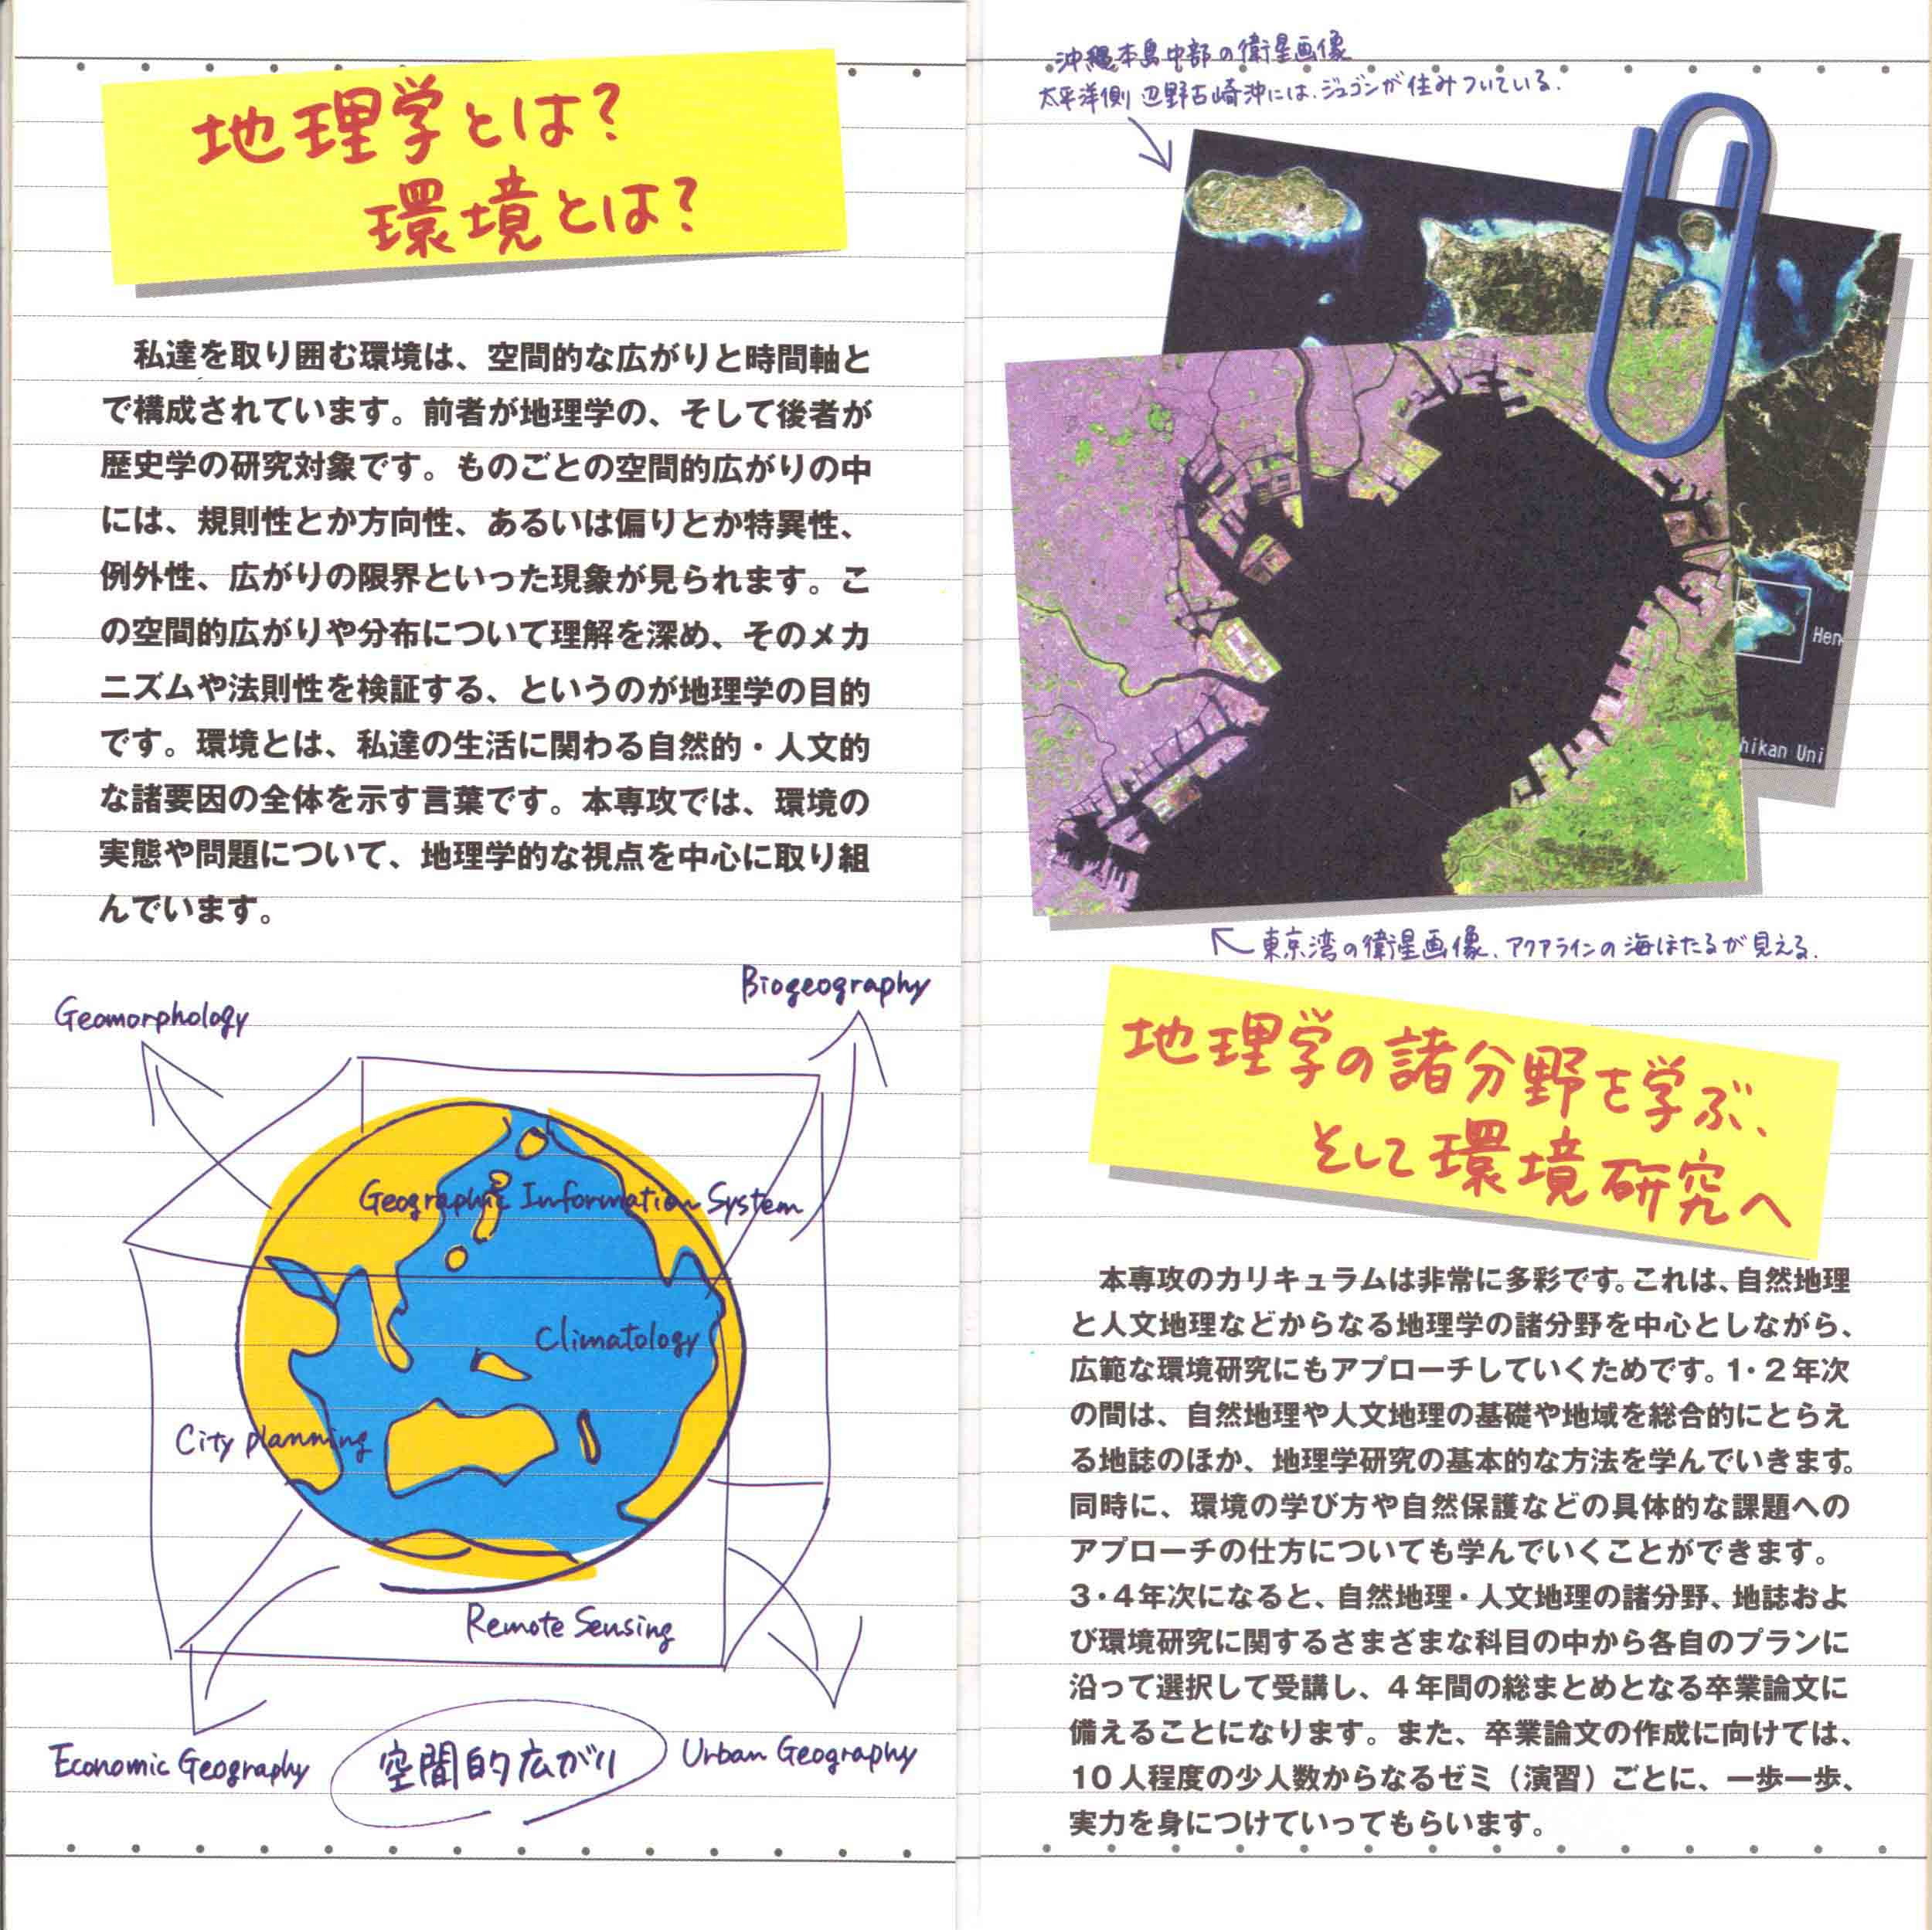 地理学とは?
環境とは?
私達を取り囲む環境は、空間的な広がりと時間軸と
で構成されています。前者が地理学の、そして後者が
歴史学の研究対象です。ものごとの空間的広がりの中
には、規則性とか方向性、あるいは偏りとか特異性、
例外性、広がりの限界といった現象が見られます。こ
の空間的広がりや分布について理解を深め、そのメカ
ニズムや法則性を検証する、というのが地理学の目的
です。環境とは、私達の生活に関わる自然的・人文的
な諸要因の全体を示す言葉です。本専攻では、環境の
実態や問題について、地理学的な視点を中心に取り組
んでいます。
Biogeography
Geomorphology
Geographic Information System
Climatology
City planning
Remote Sensing
Economic Geography
空間的広がり
Urban Geography
沖縄本島中部の衛星画像
太平洋側 辺野古崎沖には、ジュゴンが住みついている.
Hen
hikan Uni
東京湾の衛星画像、アクアラインの海ほたるが見える.
地理学の諸分野を学ぶ、
そして環境研究へ
本専攻のカリキュラムは非常に多彩です。これは、自然地理
と人文地理などからなる地理学の諸分野を中心としながら、
広範な環境研究にもアプローチしていくためです。1・2年次
の間は、自然地理や人文地理の基礎や地域を総合的にとらえ
る地誌のほか、地理学研究の基本的な方法を学んでいきます。
同時に、環境の学び方や自然保護などの具体的な課題への
アプローチの仕方についても学んでいくことができます。
3・4年次になると、自然地理・人文地理の諸分野、地誌およ
び環境研究に関するさまざまな科目の中から各自のプランに
沿って選択して受講し、4年間の総まとめとなる卒業論文に
備えることになります。また、卒業論文の作成に向けては、
10人程度の少人数からなるゼミ（演習）ごとに、一歩一歩、
実力を身につけていってもらいます。